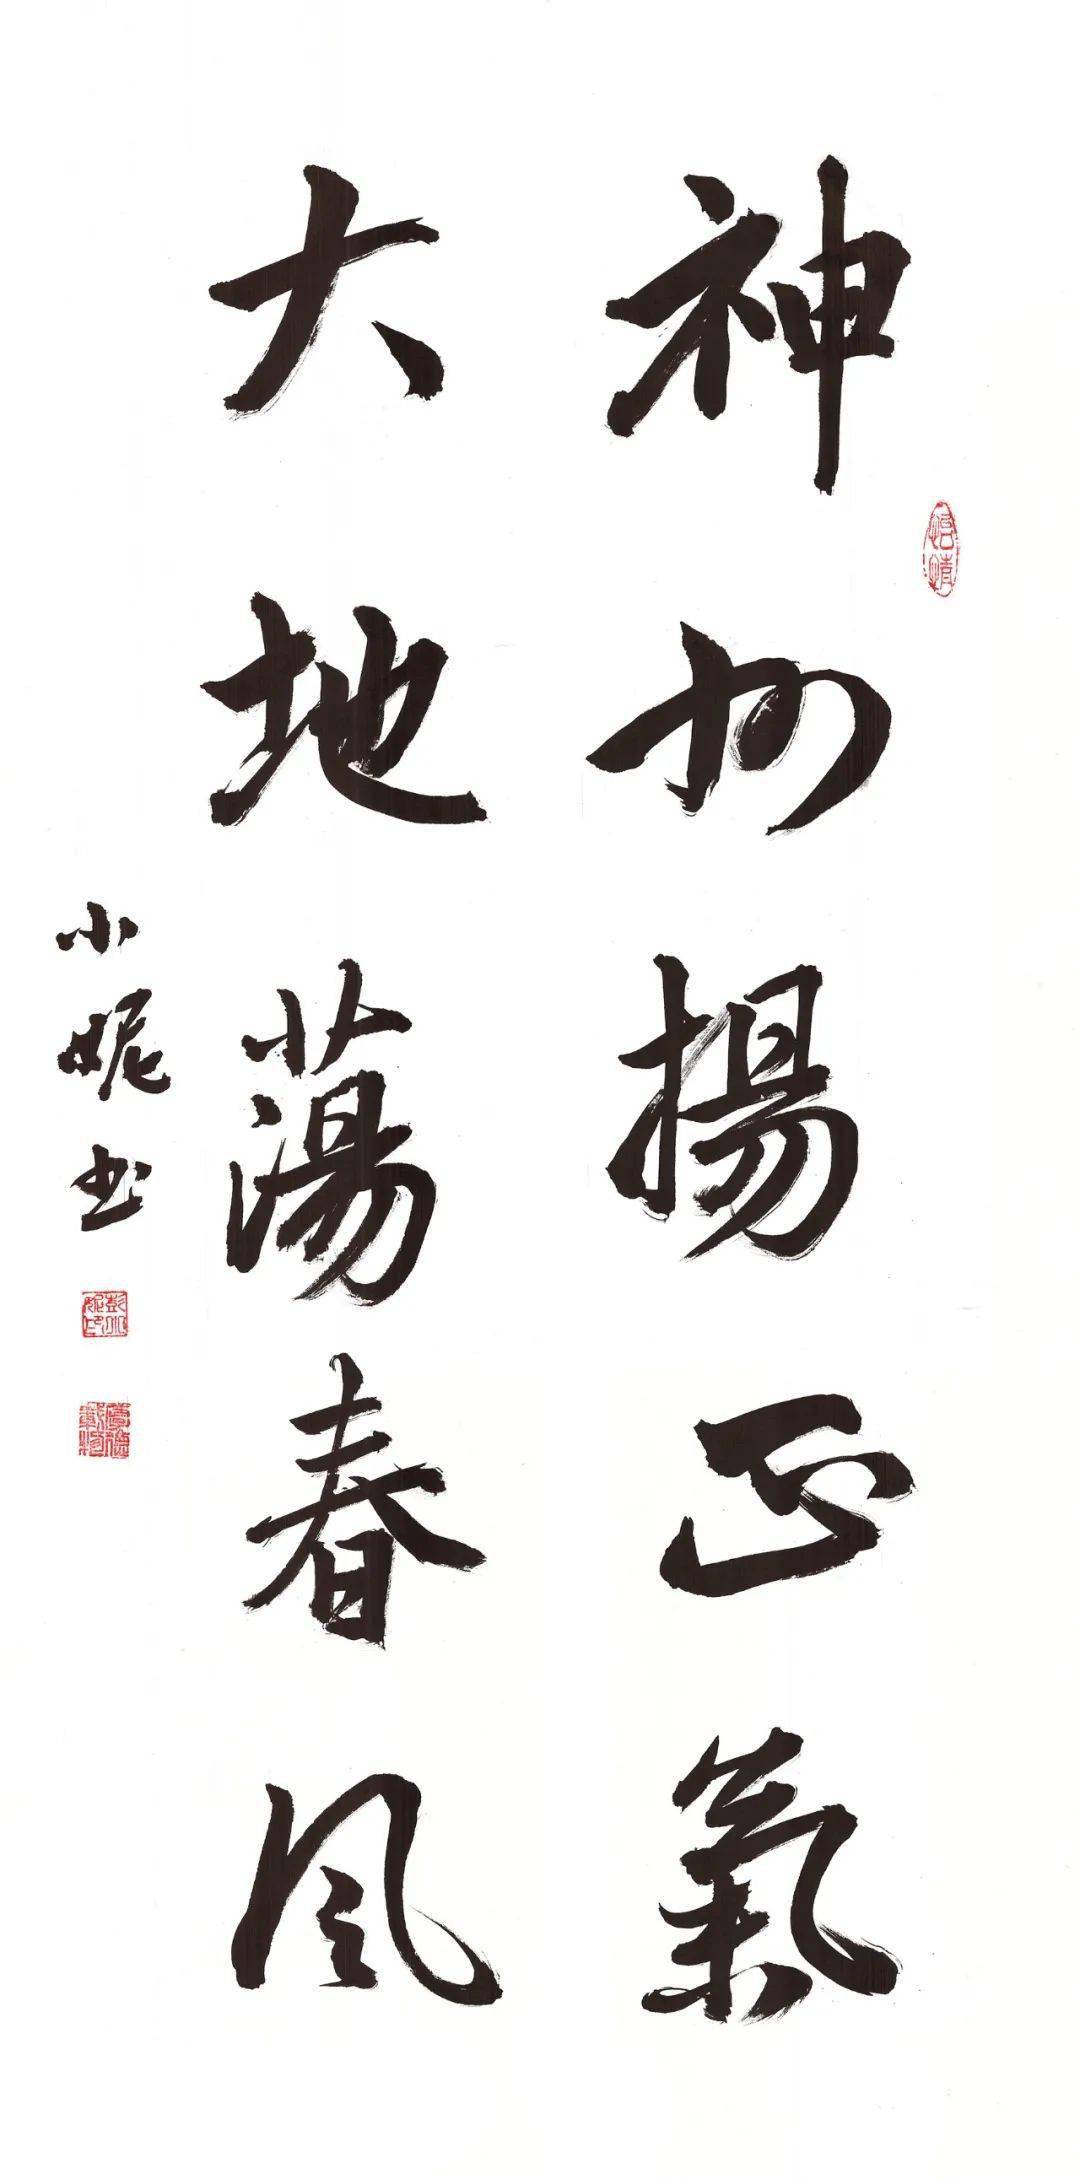 神州揚正氣
大地蕩春风
小妮书